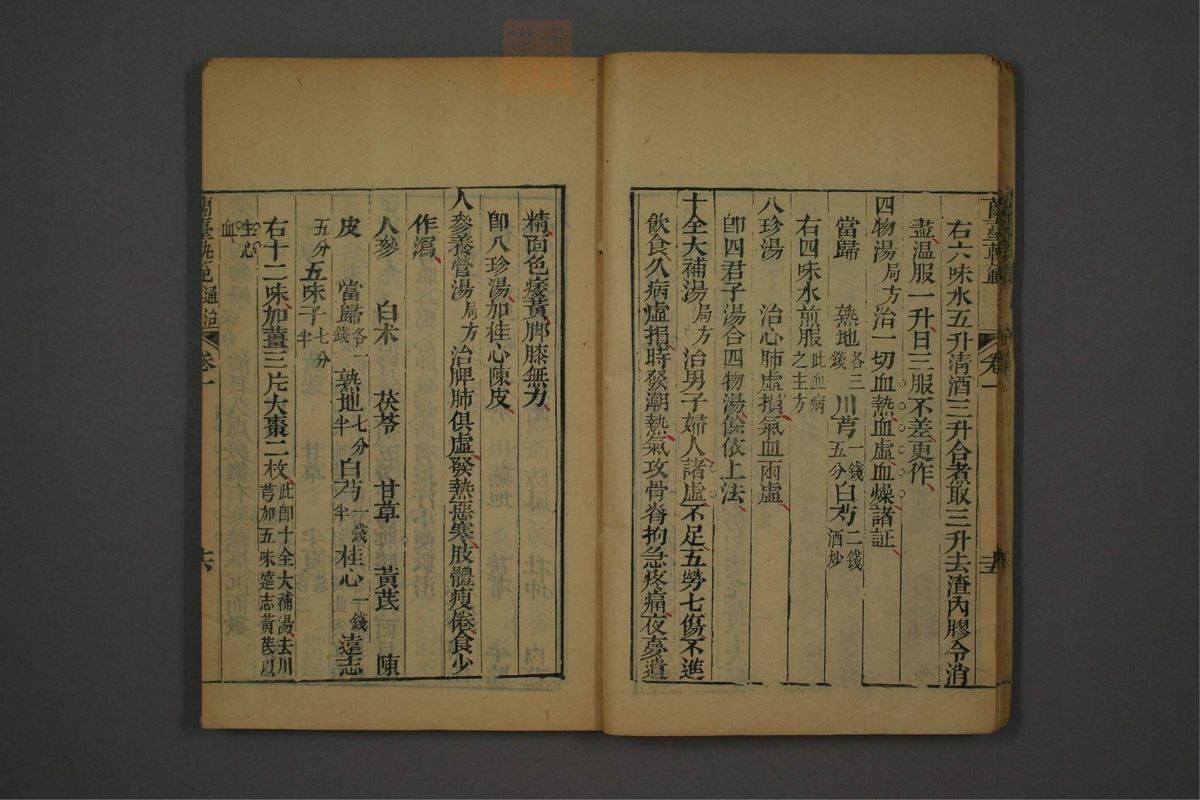 右六味水五升清酒三升合煮取三升去渣內膠令消
盡溫服一升日三服不差更作
四物湯局方治一切血熱血虛血燥諸証
當歸 熟地各三錢 川芎一錢五分 白芍二錢酒炒
右四味水煎服此血病之主方
八珍湯 治心肺虛損氣血兩虛
卽四君子湯合四物湯餘依上法
十全大補湯局方治男子婦人諸虛不足五勞七傷不進
飲食久病虛損時發潮熱氣攻骨脊拘急疼痛夜夢遺
卷一
十五
精面色痿黃脚膝無力
卽八珍湯加桂心陳皮
人參養營湯局方治脾肺俱虛發熱惡寒肢體瘦倦食少
作瀉
人參 白朮 茯苓 甘草 黃芪 陳
皮 當歸各一錢 熟地七分半 白芍一錢半 桂心一錢 遠志
五分 五味子七分半
右十二味加薑三片大棗二枚此卽十全大補湯去川芎加五味遠志黃芪以
生心血
卷一
十六